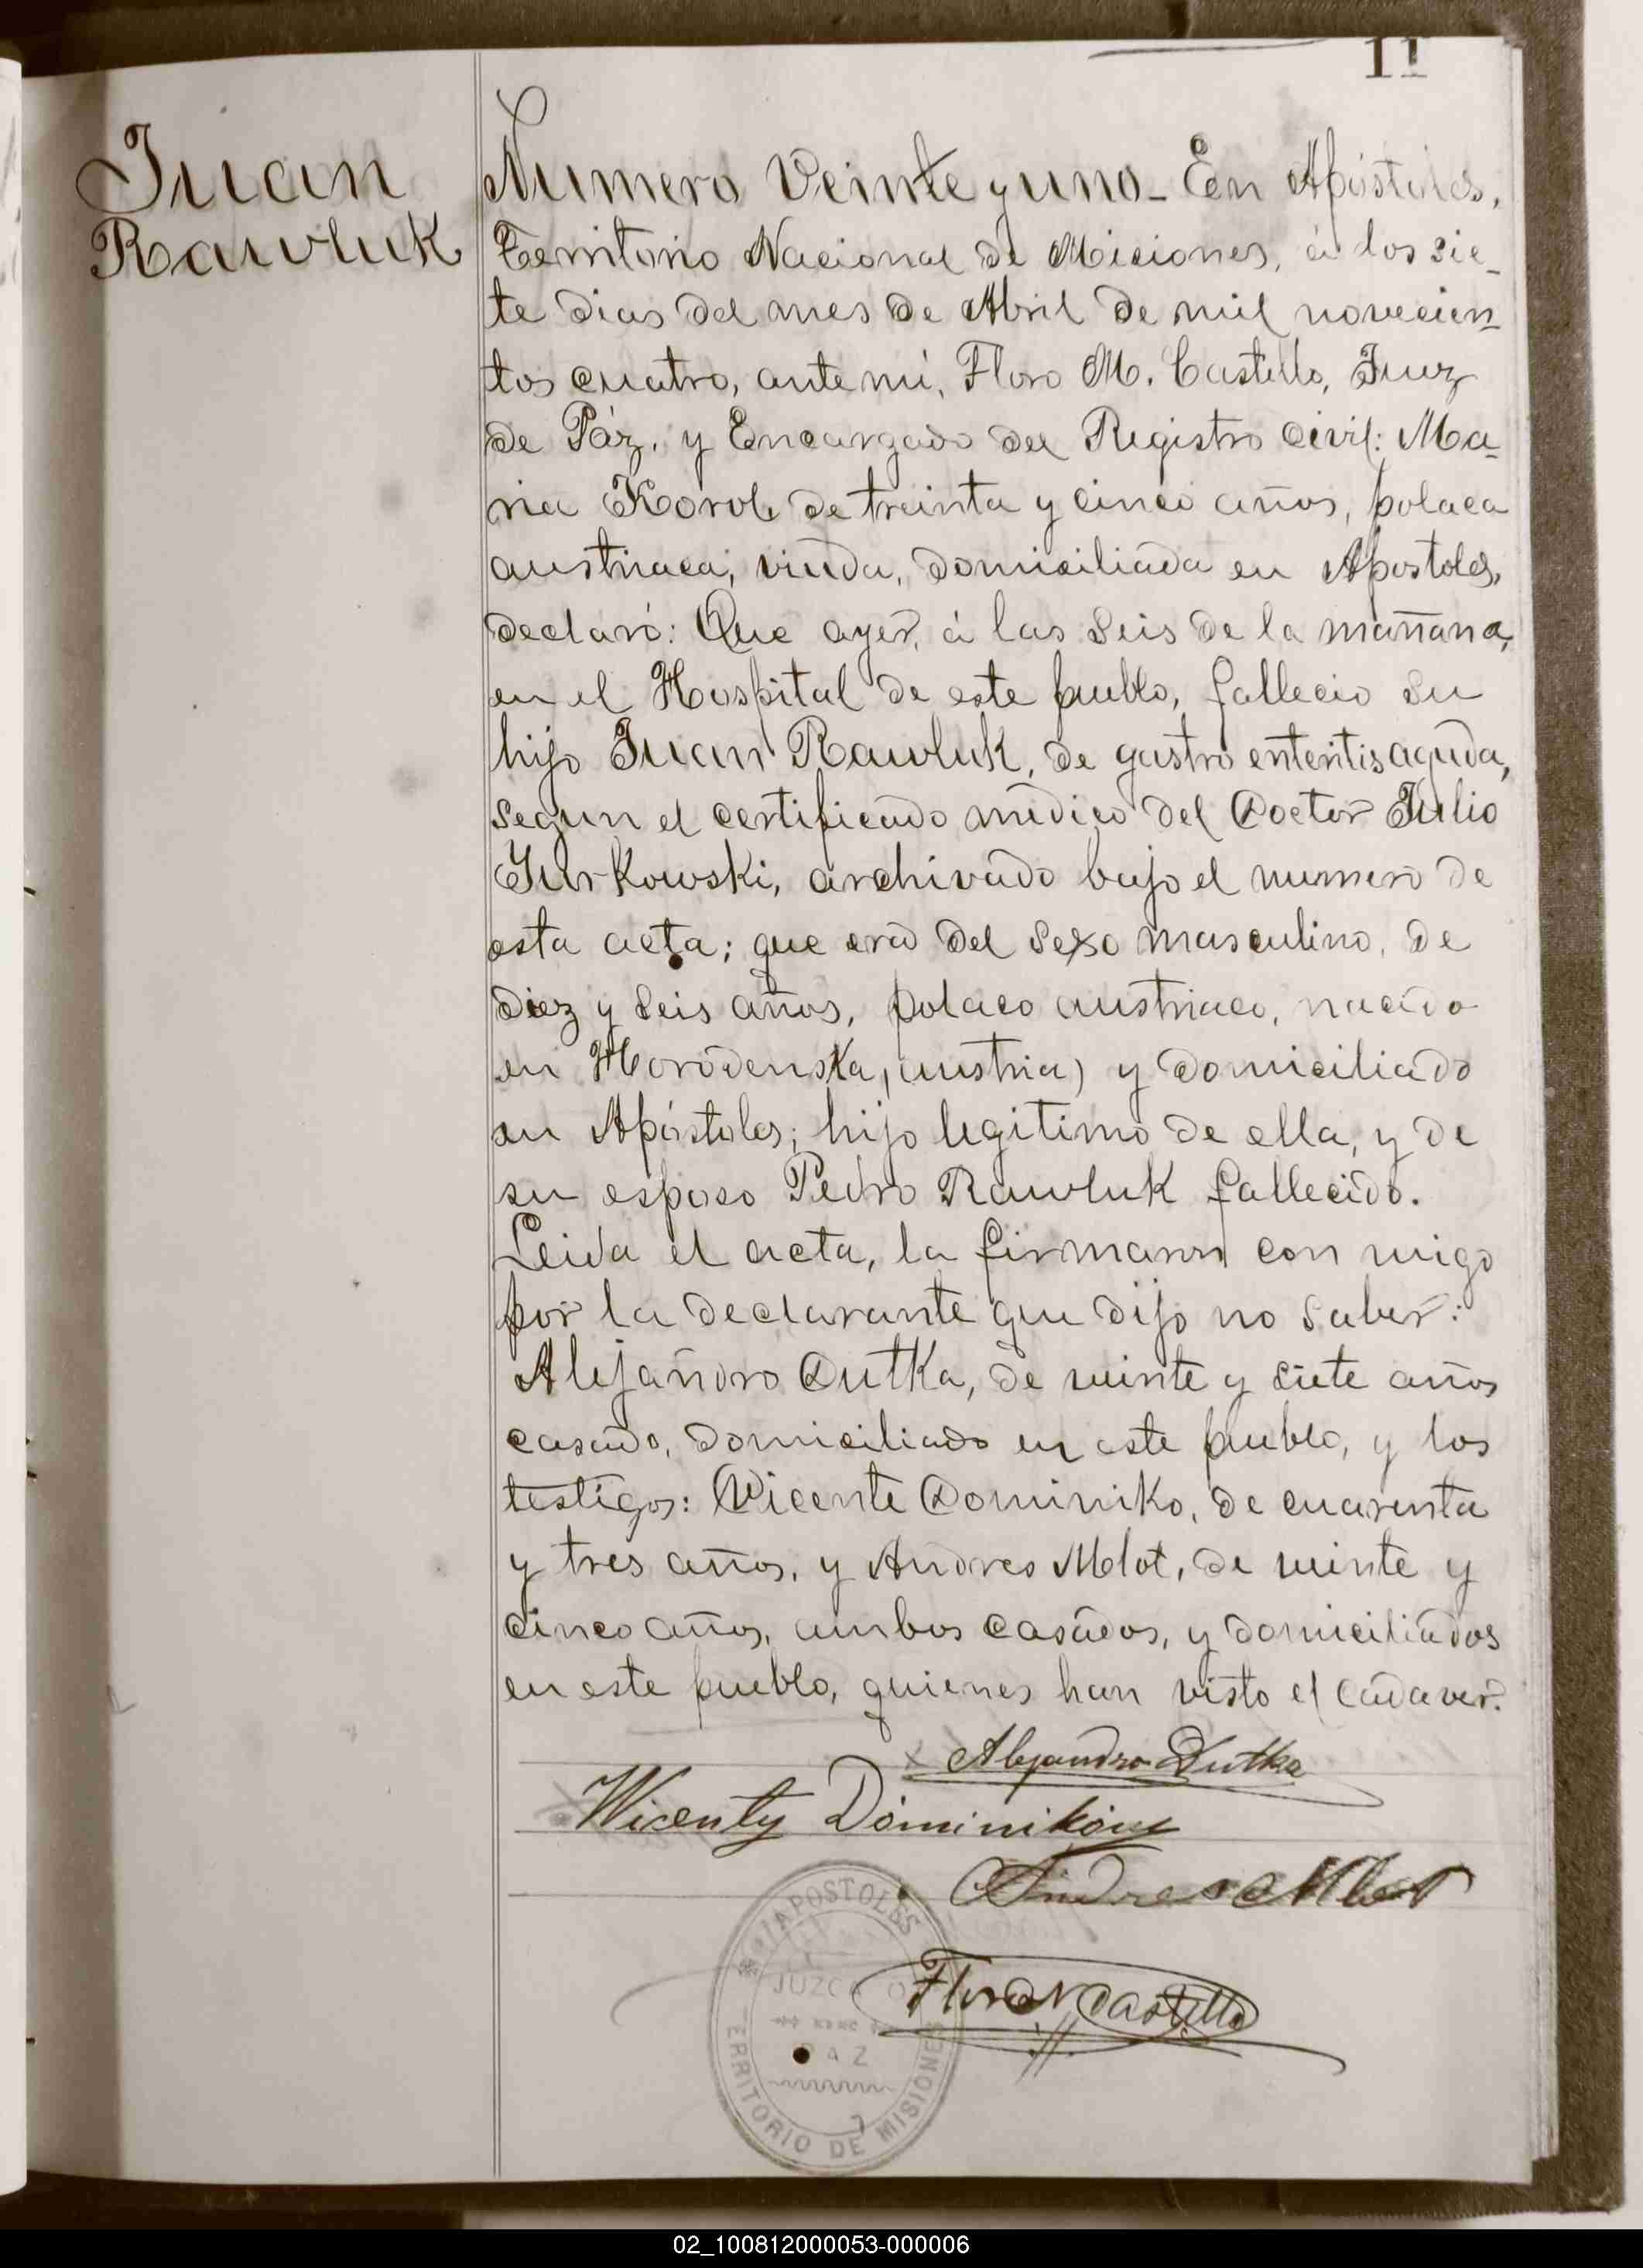 11
Juan
Rawluk
Numero Veinte y uno_ En Apóstoles,
Territorio Nacional de Miciones, á los sie_
te dias del mes de Abril de mil novecien_
tos cuatro, ante mi, Floro M. Castillo, Juez
de Páz, y Encargado del Registro Civil: Ma_
ria Korol, de treinta y cinco años, polaca
austriaca, viuda, domiciliada en Apostoles,
declaró: Que ayer, á las seis de la mañana,
en el Hospital de este pueblo, fallecio su
hijo Juan Rawluk, de gastro enteritis aguda,
segun el certificado médico del Doctor Julio
Jurkowski, archivado bajo el numero de
esta acta; que era del sexo masculino, de
diez y seis años, polaco austriaco, nacido
en Horodenska, (austria) y domiciliado
en Apóstoles; hijo legitimo de ella, y de
su esposo Pedro Rawluk fallecido.
Leida el acta, la firmaron con migo
por la declarante que dijo no saber:
Alejandro Dutka, de veinte y siete años
casado, domiciliado en este pueblo, y los
testigos: Vicente Dominiko, de cuarenta
y tres años, y Andres Mlot, de veinte y
cinco años, ambos casados, y domiciliados
en este pueblo, quienes han visto el cadaver.
Alejandro Dutka
Wicenty Dominików
Andres Mlot
Floro M Castillo
APOSTOLES
JUZGADO
PAZ
TERRITORIO DE MISIONES
02_100812000053-000006